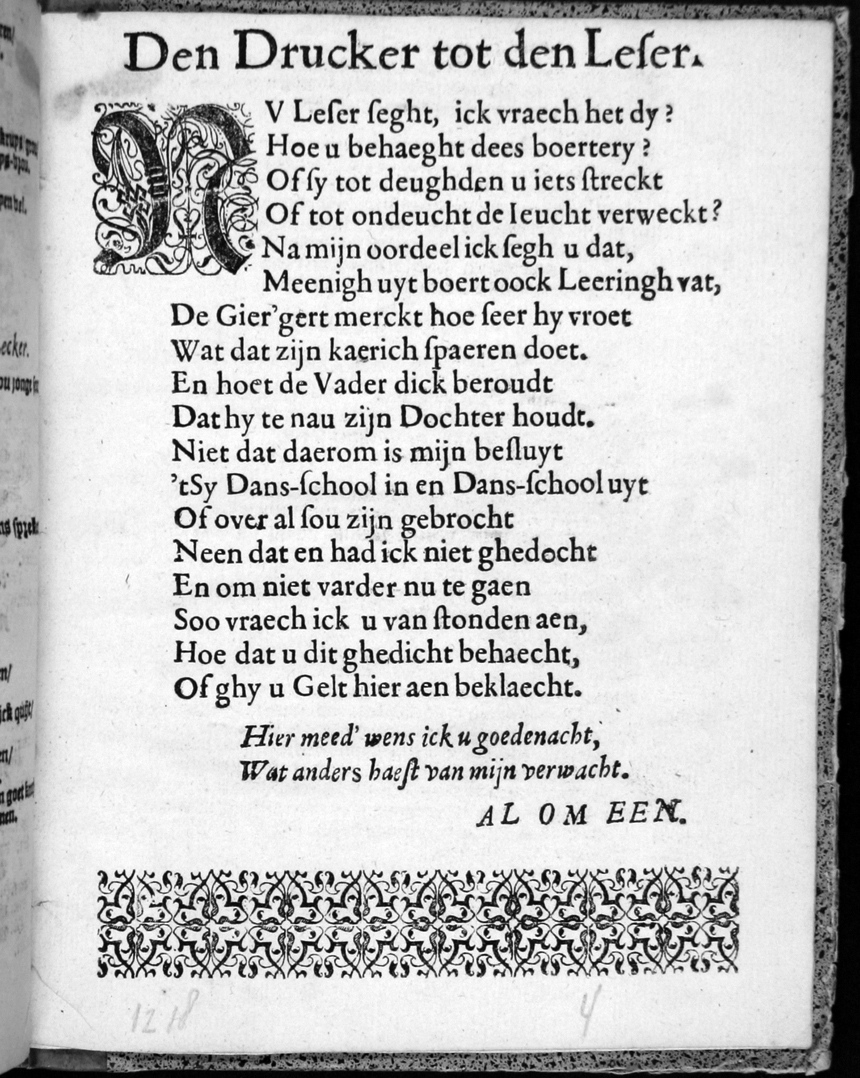 Den Drucker tot den Leſer.
NV Leſer ſeght, ick vraech het dy?
Hoe u behaeght dees boertery?
Of ſy tot deughden u iets ſtreckt
Of tot ondeucht de Ieucht verweckt?
Na mijn oordeel ick ſegh u dat,
Meenigh uyt boert oock Leeringh vat,
De Gier'gert merckt hoe ſeer hy vroet
Wat dat zijn kaerich ſpaeren doet.
En hoet de Vader dick beroudt
Dat hy te nau zijn Dochter houdt.
Niet dat daerom is mijn beſluyt
'tSy Dans-ſchool in en Dans-ſchool uyt
Of over al ſou zijn gebrocht
Neen dat en had ick niet ghedocht
En om niet varder nu te gaen
Soo vraech ick u van ſtonden aen,
Hoe dat u dit ghedicht behaecht,
Of ghy u Gelt hier aen beklaecht.
Hier meed' wens ick u goedenacht,
Wat anders haeſt van mijn verwacht.
AL OM EEN.
12 18
4
ecker.